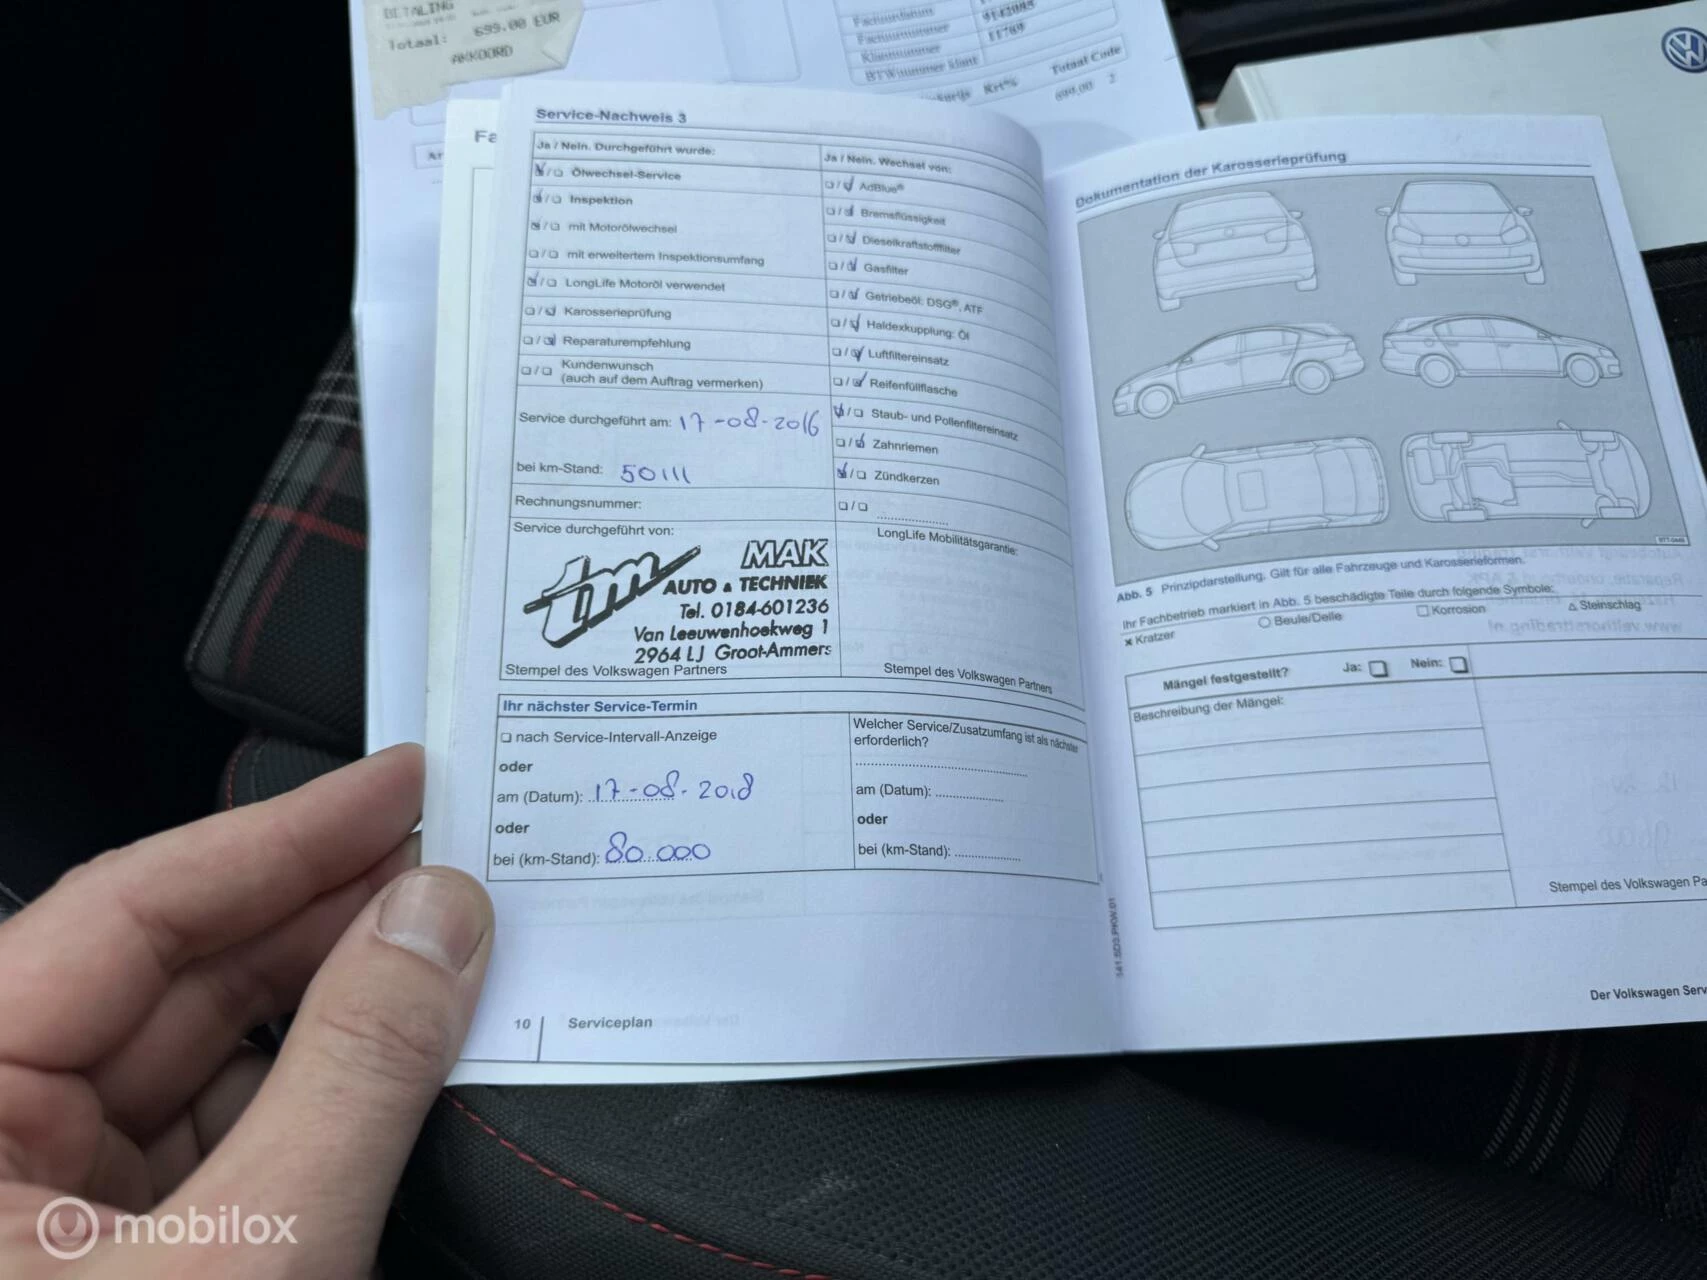 BETALING
Totaal: 699.00 EUR
AKKOORD
Factuurdatum
Factuurnummer
Klantnummer
BTWnummer klant
11769
Krt%
Totaal Code
699,00 2
Service-Nachweis 3
Ja / Nein. Durchgeführt wurde:
Ölwechsel-Service
Inspektion
mit Motorölwechsel
mit erweitertem Inspektionsumfang
LongLife Motoröl verwendet
Karosserieprüfung
Reparaturempfehlung
Kundenwunsch
(auch auf dem Auftrag vermerken)
Service durchgeführt am: 17-08-2016
bei km-Stand: 50111
Rechnungsnummer:
Service durchgeführt von:
tm MAK
AUTO & TECHNIEK
Tel. 0184-601236
Van Leeuwenhoekweg 1
2964 LJ Groot-Ammers
Stempel des Volkswagen Partners
Ja / Nein. Wechsel von:
AdBlue®
Bremsflüssigkeit
Dieselkraftstofffilter
Gasfilter
Getriebeöl: DSG®, ATF
Haldexkupplung: Öl
Luftfiltereinsatz
Reifenfüllflasche
Staub- und Pollenfiltereinsatz
Zahnriemen
Zündkerzen
LongLife Mobilitätsgarantie:
Stempel des Volkswagen Partners
Ihr nächster Service-Termin
nach Service-Intervall-Anzeige
oder
am (Datum): 17-08-2018
oder
bei (km-Stand): 80.000
Welcher Service/Zusatzumfang ist als nächster
erforderlich?
am (Datum):
oder
bei (km-Stand):
10 Serviceplan
141.5D3.PKW.01
Dokumentation der Karosserieprüfung
Abb. 5 Prinzipdarstellung. Gilt für alle Fahrzeuge und Karosserieformen.
Ihr Fachbetrieb markiert in Abb. 5 beschädigte Teile durch folgende Symbole:
× Kratzer ○ Beule/Delle □ Korrosion △ Steinschlag
Mängel festgestellt? Ja: Nein:
Beschreibung der Mängel:
Stempel des Volkswagen Pa
Der Volkswagen Serv
mobilox